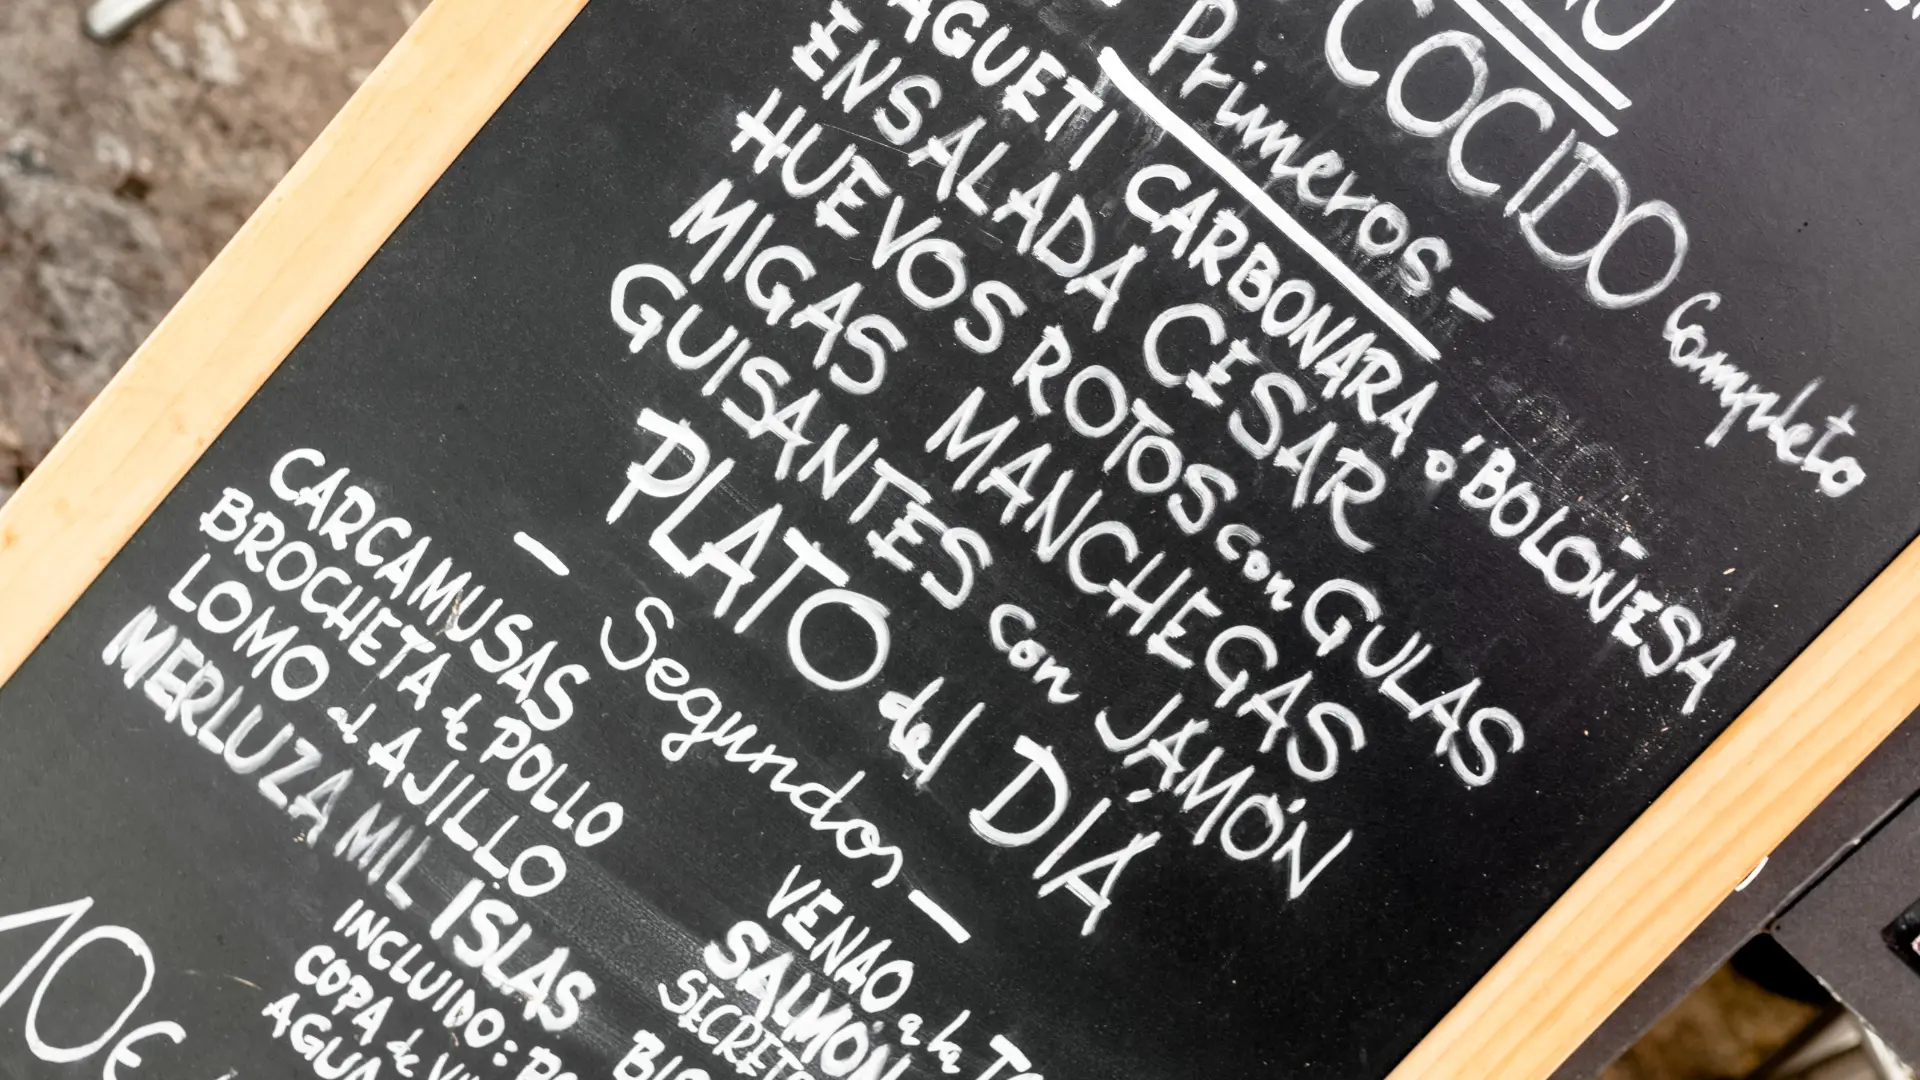 COCIDO completo
Primeros -
AGUETI CARBONARA ó BOLOÑESA
ENSALADA CESAR
HUEVOS ROTOS con GULAS
MIGAS MANCHEGAS
GUISANTES con JAMÓN
PLATO del DÍA
- Segundos -
CARCAMUSAS
BROCHETA de POLLO
LOMO al AJILLO
MERLUZA MIL ISLAS
VENAO a la
SALMÓN
SECRETO
INCLUIDO:
COPA de
AGUA
10€